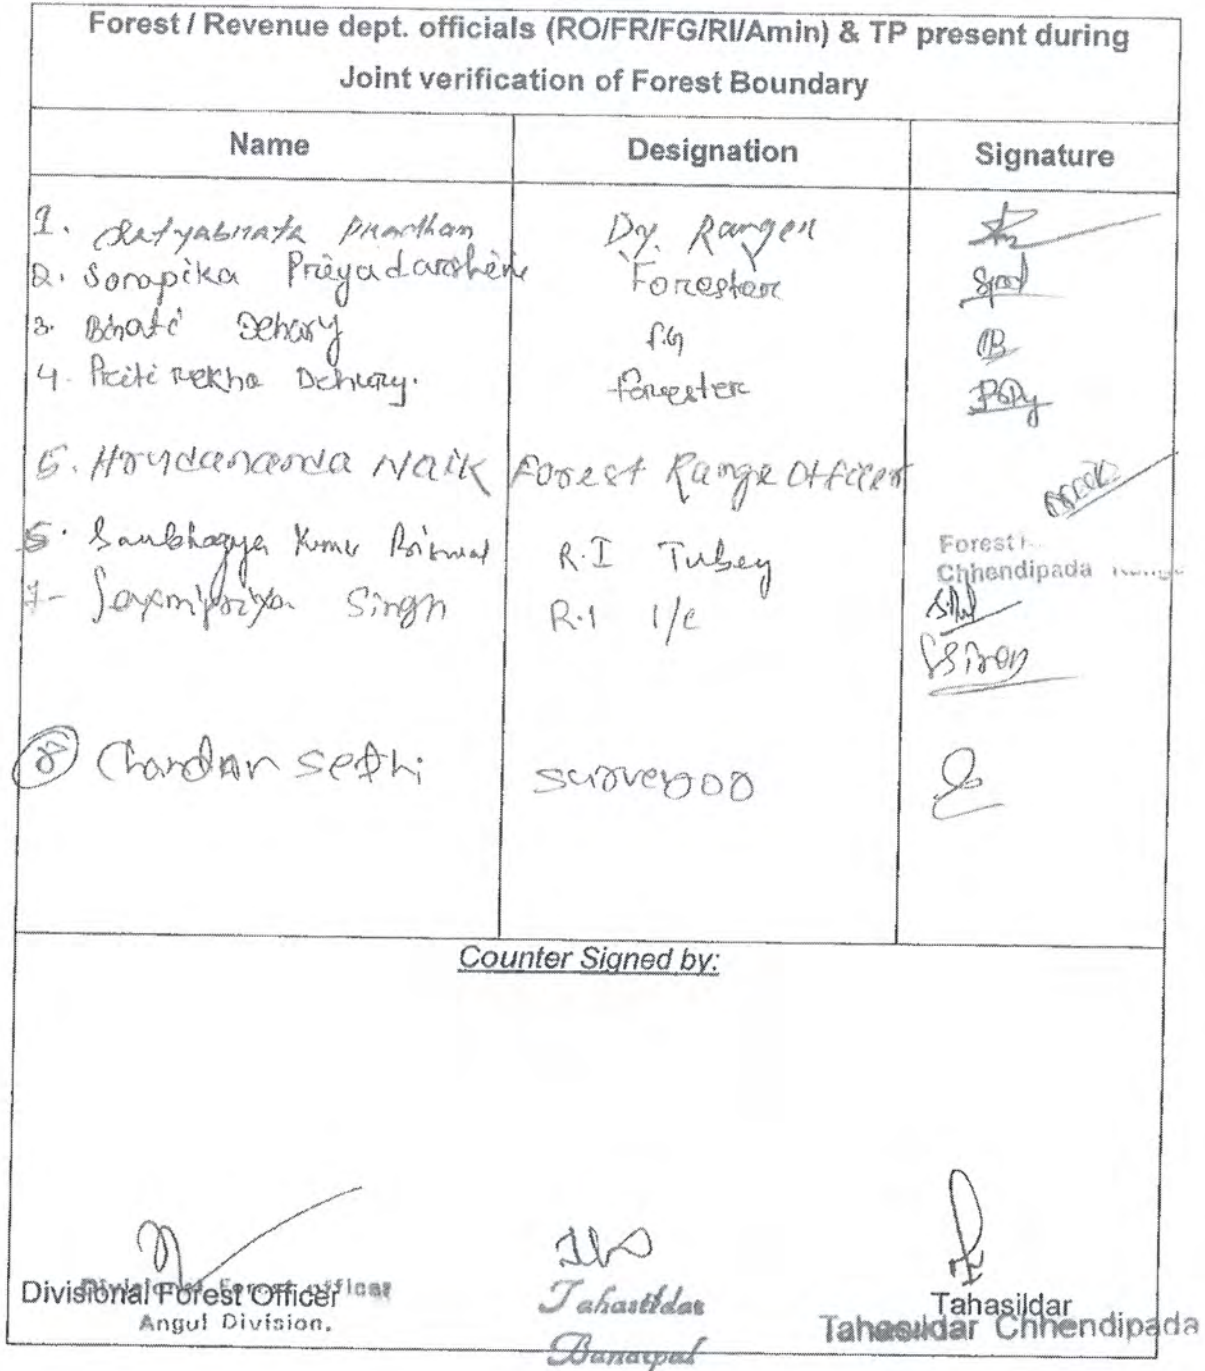 Forest / Revenue dept. officials (RO/FR/FG/RI/Amin) & TP present during
Joint verification of Forest Boundary
Name Designation Signature
1. Satyabrata Pradhan Dy. Ranger
2. Sorapika Priyadarshini Forester
3. Binati Dehury F.G
4. Priti rekha Dehury. Forester
5. Hrudananda Naik Forest Range Officer
Forest
Chhendipada Range
6. Saubhagya Kumar Biswal R.I Tubey
7- Laxmipriya Singh R.I I/c
8 Chandan Sethi surveyor
Counter Signed by:
Divisional Forest Officer
Divisional Forest Officer
Angul Division.
Tahasildar
Banarpal
Tahasildar
Tahasildar Chhendipada